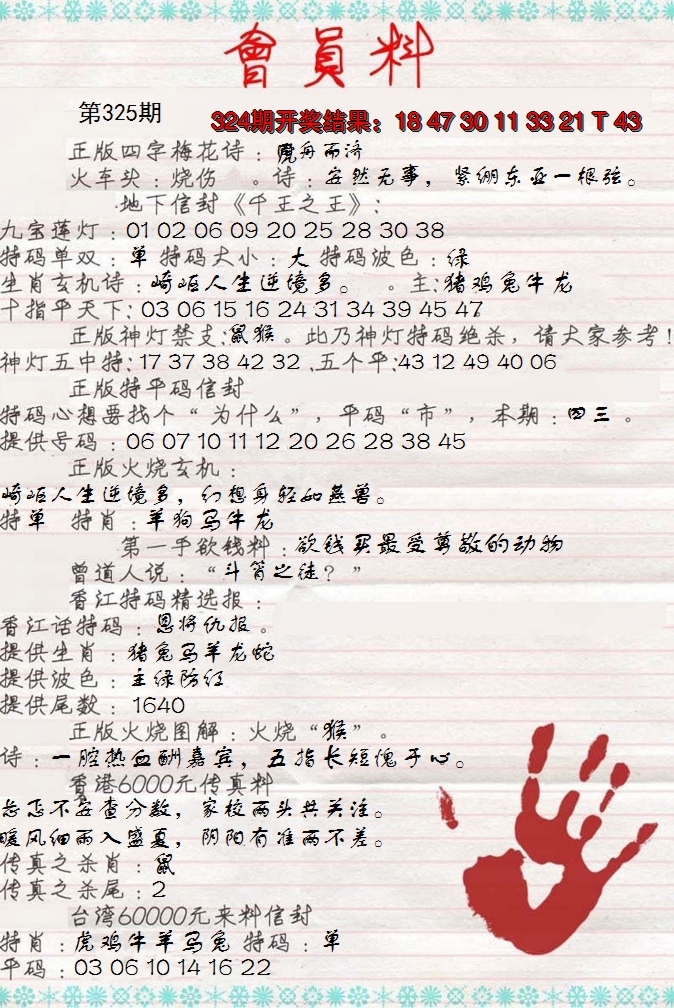 會員料
第325期
324期开奖结果：18 47 30 11 33 21 T 43
正版四字梅花诗：虎舟而济
火车头：烧伤 。诗：安然无事，紧绷东亚一根弦。
地下信封《千王之王》：
九宝莲灯：01 02 06 09 20 25 28 30 38
特码单双：单 特码大小：大 特码波色：绿
生肖玄机诗：崎岖人生逆境多。 。主:猪鸡兔牛龙
十指平天下: 03 06 15 16 24 31 34 39 45 47
正版神灯禁支:鼠猴。此乃神灯特码绝杀，请大家参考!
神灯五中特: 17 37 38 42 32 .五个平:43 12 49 40 06
正版特平码信封
特码心想要找个“为什么”，平码“市”，本期：四三 。
提供号码：06 07 10 11 12 20 26 28 38 45
正版火烧玄机：
崎岖人生逆境多，幻想身轻如燕兽。
特单 特肖：羊狗马牛龙
第一手欲钱料：欲钱买最受尊敬的动物
曾道人说：“斗筲之徒？”
香江特码精选报：
香江话特码：恩将仇报。
提供生肖：猪兔马羊龙蛇
提供波色：主绿防红
提供尾数：1640
正版火烧图解：火烧“猴”。
诗：一腔热血酬嘉宾，五指长短愧于心。
香港6000元传真料
忐忑不安查分数，家校两头共关注。
暖风细雨入盛夏，阴阳有准两不差。
传真之杀肖：鼠
传真之杀尾：2
台湾60000元来料信封
特肖：虎鸡牛羊马兔 特码：单
平码：03 06 10 14 16 22